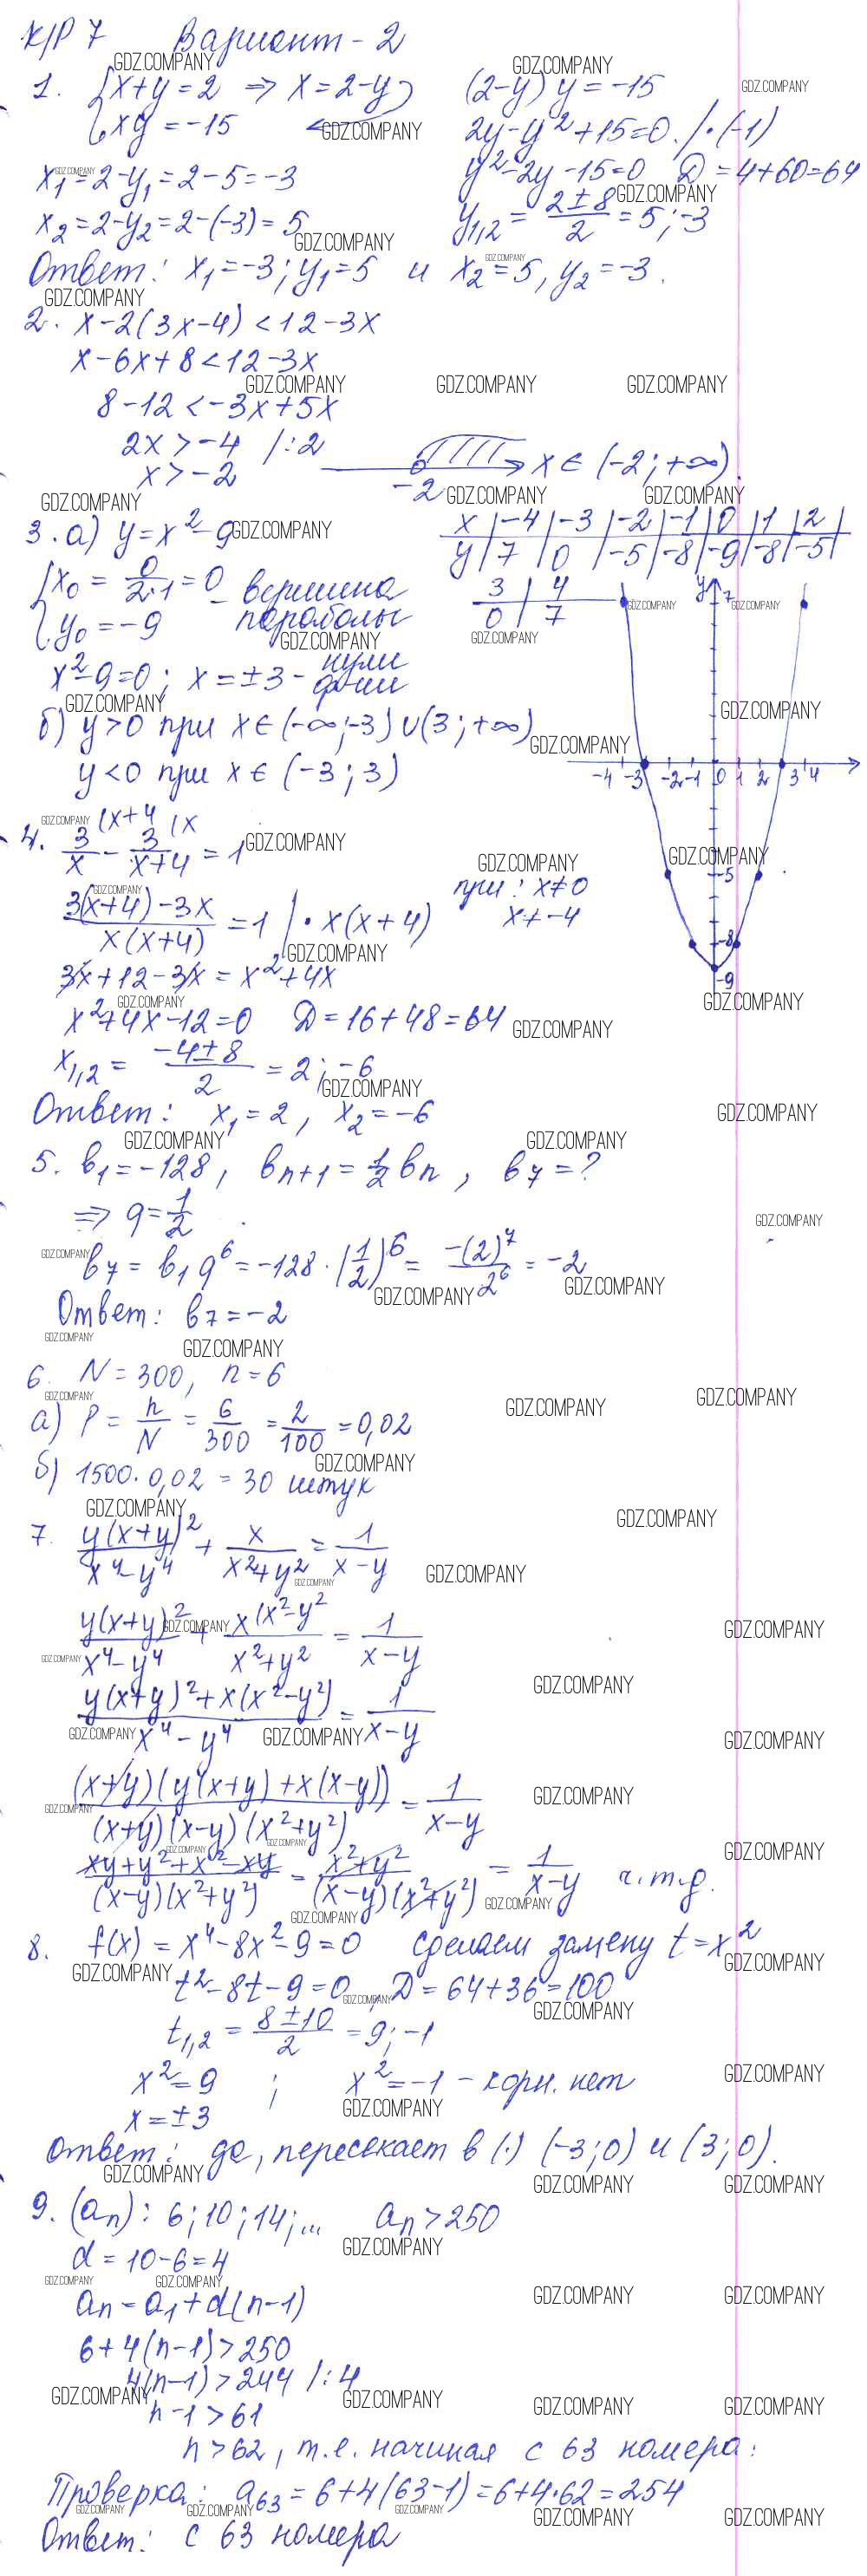 К/Р 7 Вариант - 2
1. {x+y=2 ⇒ x=2-y (2-y)y=-15
{xy=-15 2y-y²+15=0 /·(-1)
x₁=2-y₁=2-5=-3 y²-2y-15=0 Д=4+60=64
x₂=2-y₂=2-(-3)=5 y₁,₂ = (2±8)/2 = 5; -3
Ответ: x₁=-3; y₁=5 и x₂=5, y₂=-3.
2. x-2(3x-4)<12-3x
x-6x+8<12-3x
8-12<-3x+5x
2x>-4 /:2
x>-2 -2 x∈(-2;+∞).
3. а) y=x²-9 x | -4 | -3 | -2 | -1 | 0 | 1 | 2 |
y | 7 | 0 | -5 | -8 | -9 | -8 | -5 |
{x₀ = 0/(2·1) = 0 - вершина 3 | 4
{y₀=-9 параболы 0 | 7
x²-9=0; x=±3 - нули ф-ции
y 7
б) y>0 при x∈(-∞;-3)∪(3;+∞)
y<0 при x∈(-3;3)
-4 -3 -2 -1 0 1 2 3 4
-5
-8
-9
4. 3/x (x+4 - 3/(x+4) (x = 1
(3(x+4)-3x)/(x(x+4)) = 1 | · x(x+4) при: x≠0
x≠-4
3x+12-3x=x²+4x
x²+4x-12=0 Д=16+48=64
x₁,₂ = (-4±8)/2 = 2; -6
Ответ: x₁=2, x₂=-6
5. b₁=-128, bₙ₊₁=½bₙ, b₇=?
⇒ q=1/2
b₇=b₁q⁶=-128·(1/2)⁶ = -(2)⁷/2⁶ = -2
Ответ: b₇=-2
6. N=300, n=6
а) P = n/N = 6/300 = 2/100 = 0,02
б) 1500·0,02=30 штук
7. y(x+y)²/(x⁴-y⁴) + x/(x²+y²) = 1/(x-y)
y(x+y)²/(x⁴-y⁴) + x(x²-y²/(x²+y²) = 1/(x-y)
(y(x+y)²+x(x²-y²))/(x⁴-y⁴) = 1/(x-y)
(x+y)(y(x+y)+x(x-y))/((x+y)(x-y)(x²+y²)) = 1/(x-y)
(xy+y²+x²-xy)/((x-y)(x²+y²)) = (x²+y²)/((x-y)(x²+y²)) = 1/(x-y) ч.т.д.
8. f(x)=x⁴-8x²-9=0 сделаем замену t=x²
t²-8t-9=0, Д=64+36=100
t₁,₂ = (8±10)/2 = 9; -1
x²=9 ; x²=-1 - корн. нет
x=±3
Ответ: да, пересекает в (·) (-3;0) и (3;0).
9. (aₙ): 6; 10; 14; ... aₙ>250
d=10-6=4
aₙ=a₁+d(n-1)
6+4(n-1)>250
4(n-1)>244 /:4
n-1>61
n>62, т.е. начиная с 63 номера:
Проверка: a₆₃=6+4(63-1)=6+4·62=254
Ответ: с 63 номера
GDZ.COMPANY